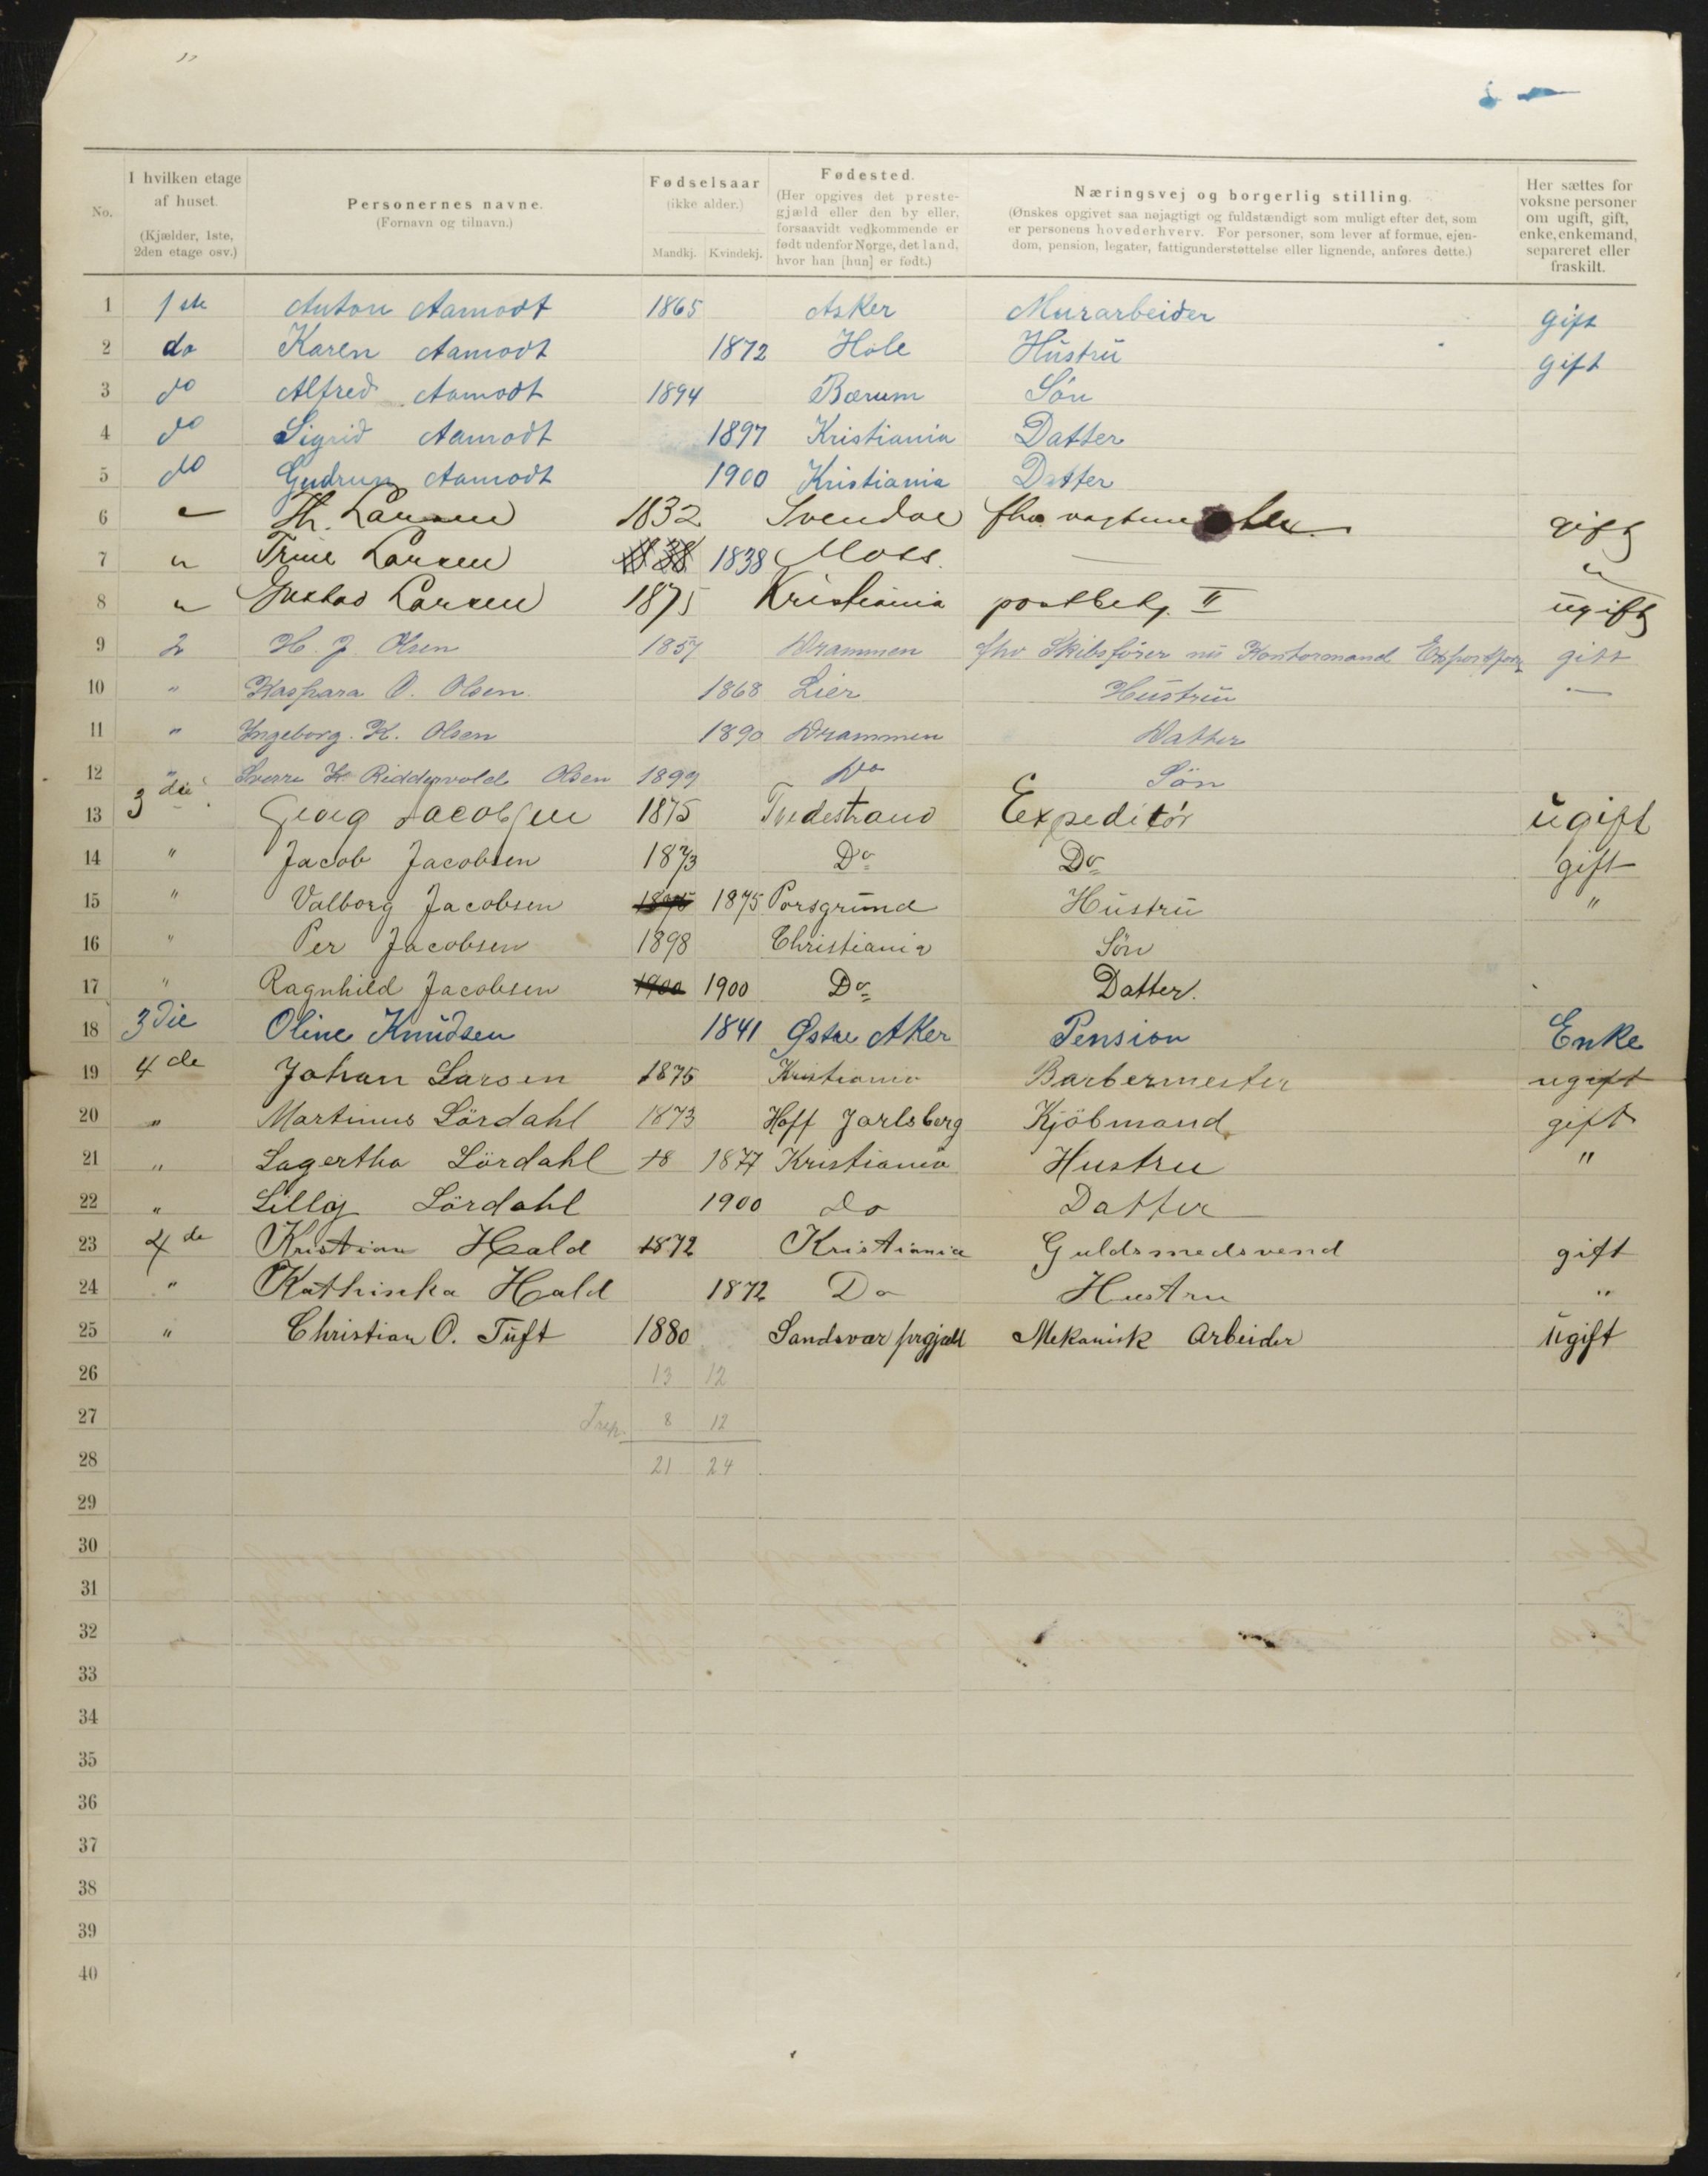 No. | I hvilken etage af huset. (Kjælder, 1ste, 2den etage osv.) | Personernes navne. (Fornavn og tilnavn.) | Fødselsaar (ikke alder.) Mandkj. Kvindekj. | Fødested. (Her opgives det prestegjæld eller den by eller, forsaavidt vedkommende er født udenfor Norge, det land, hvor han [hun] er født.) | Næringsvej og borgerlig stilling. (Ønskes opgivet saa nøjagtigt og fuldstændigt som muligt efter det, som er personens hovederhverv. For personer, som lever af formue, ejendom, pension, legater, fattigunderstøttelse eller lignende, anføres dette.) | Her sættes for voksne personer om ugift, gift, enke, enkemand, separeret eller fraskilt.
1 1ste Anton Aamodt 1865 Asker Murarbeider gift
2 do Karen Aamodt 1872 Hole Hustru gift
3 do Alfred Aamodt 1894 Bærum Søn
4 do Sigrid Aamodt 1897 Kristiania Datter
5 do Gudrun Aamodt 1900 Kristiania Datter
6 " Th. Larsen 1832 Svendoe fhv. gift
7 " Trine Larsen 1838 1838 Moss. — "
8 " Gustav Larsen 1875 Kristiania postbetj. II ugift
9 2 H. J. Olsen 1857 Drammen fhv Skibsfører nu Kontormand gift
10 " Kaspara O. Olsen. 1868 Lier Hustru —
11 " Ingeborg. K. Olsen 1890 Drammen Datter
12 " Sverre Riddervold Olsen 1899 Do Søn
13 3die Georg Jacobsen 1875 Tvedestrand Expeditør ugift
14 " Jacob Jacobsen 1873 Do Do gift
15 " Valborg Jacobsen 1875 1875 Porsgrund Hustru "
16 " Per Jacobsen 1898 Christiania Søn
17 " Ragnhild Jacobsen 1900 1900 Do Datter.
18 3die Oline Knudsen 1841 Østre Aker Pension Enke
19 4de Johan Larsen 1875 Kristiania Barbermester ugift
20 " Martinus Lørdahl 1873 Hoff Jarlsberg Kjøbmand gift
21 " Lagertha Lørdahl 18 1877 Kristiania Hustru "
22 " Lilly Lørdahl 1900 Do Datter
23 4de Kristian Hald 1872 Kristiania Guldsmedsvend gift
24 " Kathinka Hald 1872 Do Hustru "
25 " Christian O. Tuft 1880 Sandsvær prgjæld Mekanisk Arbeider ugift
26 13 12
27 8 12
28 21 24
29
30
31
32
33
34
35
36
37
38
39
40